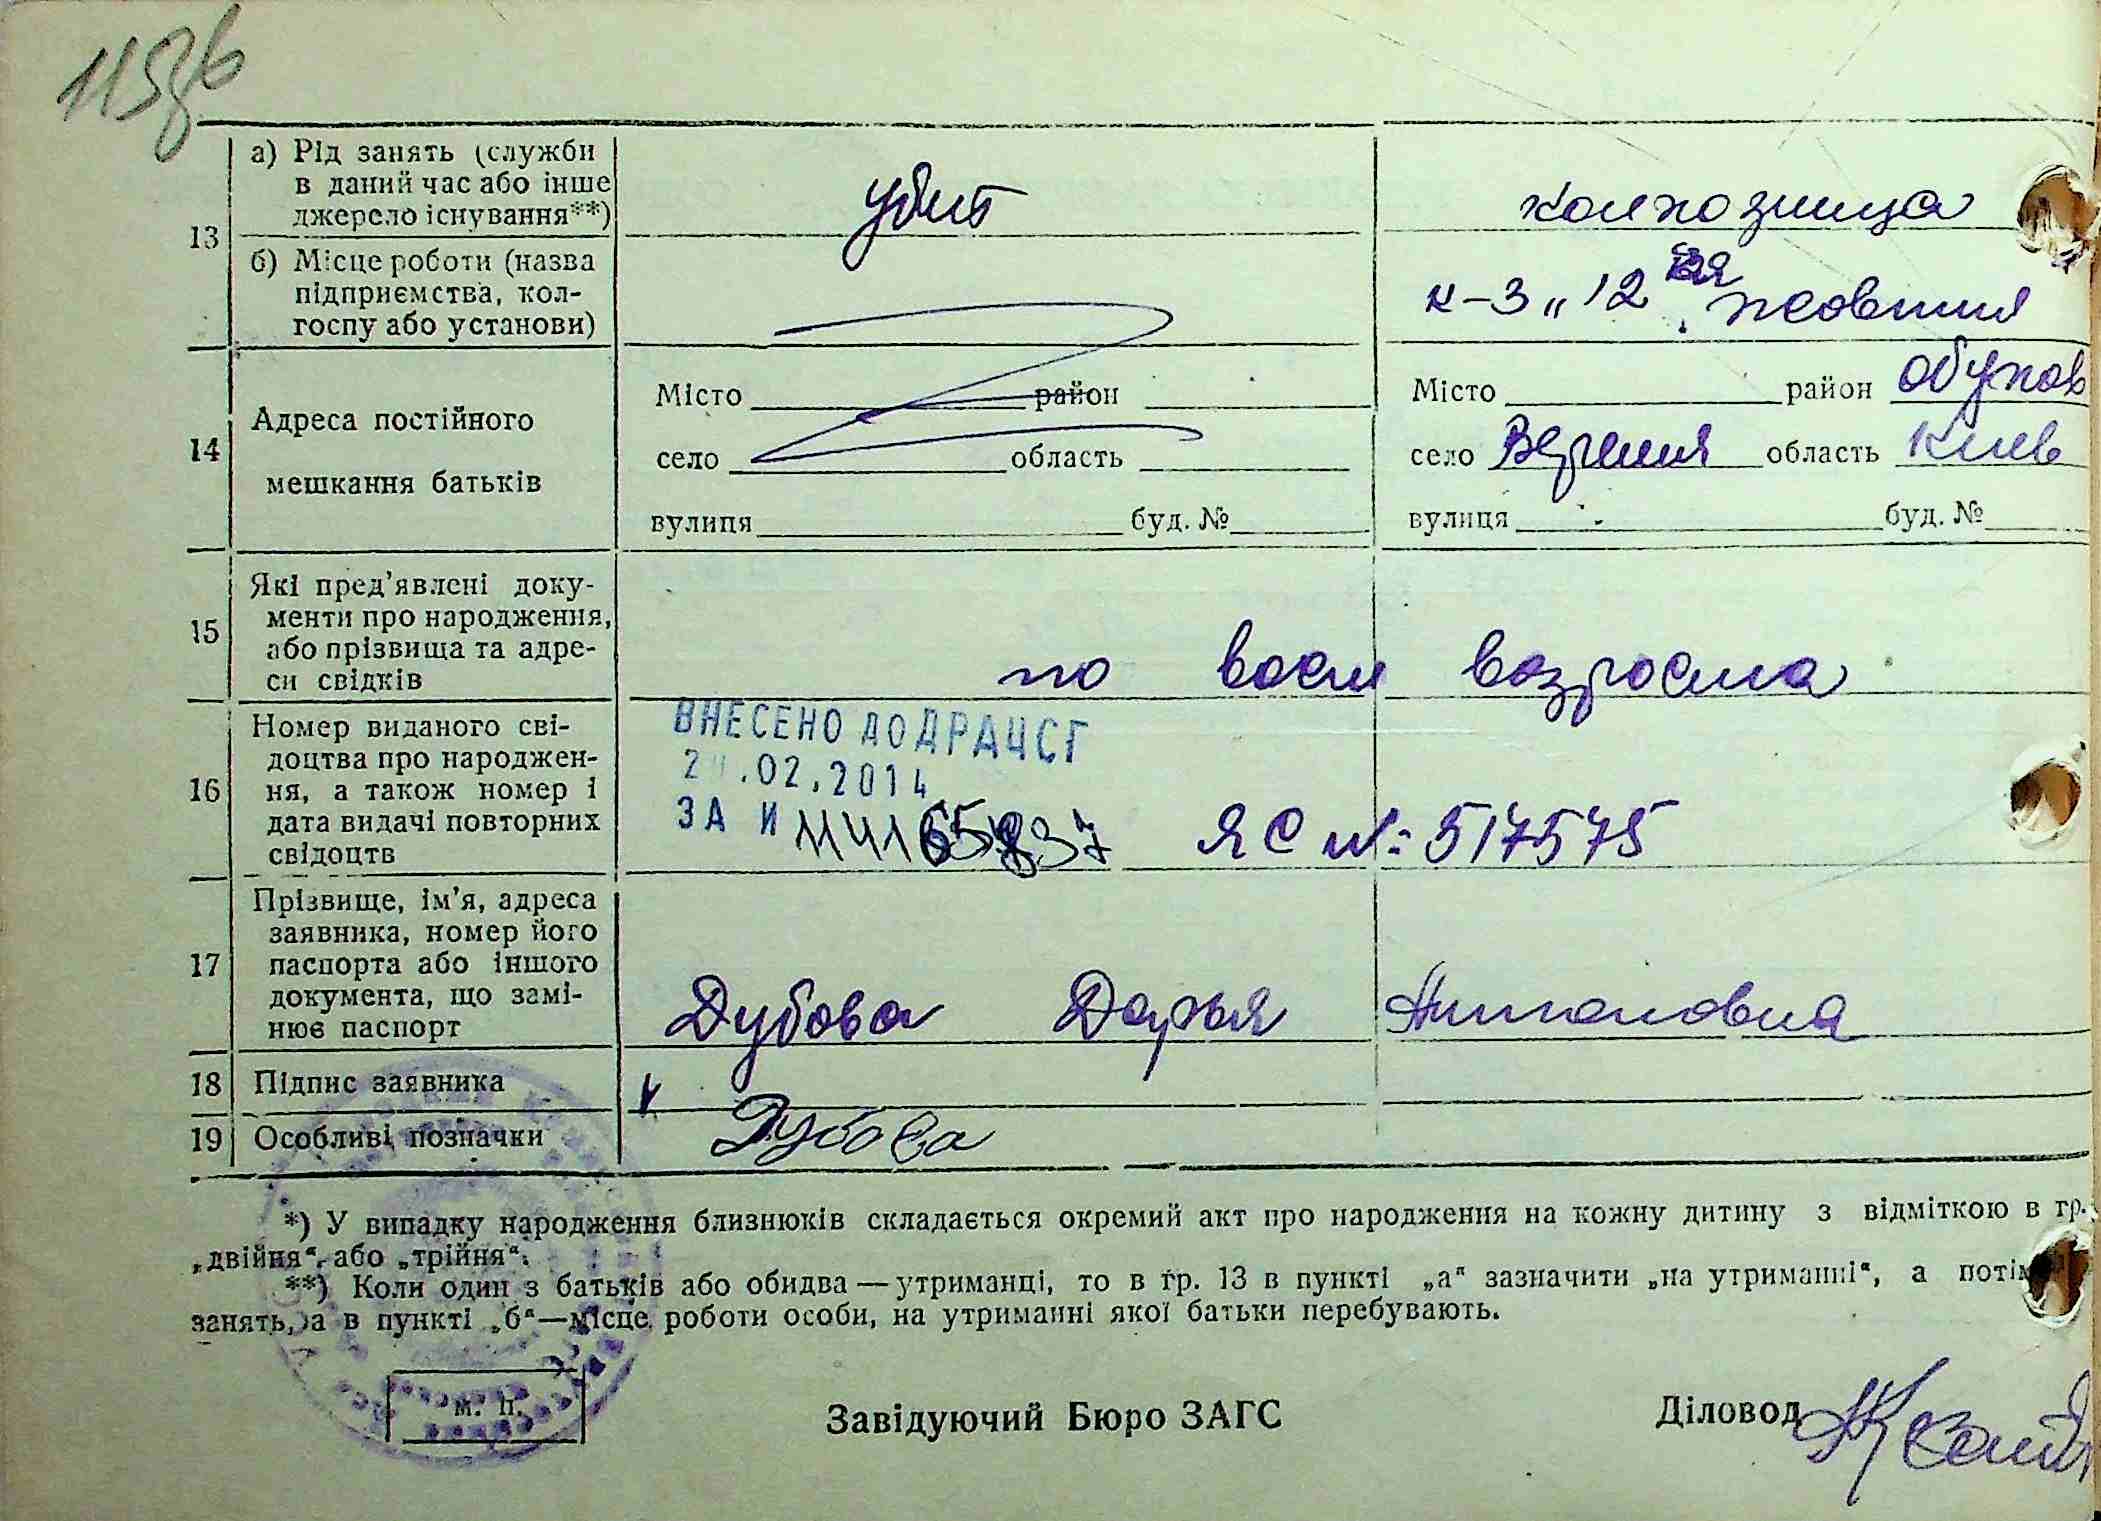 115зв
13
а) Рід занять (служби
в даний час або інше
джерело існування**)
убит
колхозница
б) Місце роботи (назва
підприємства, кол-
госпу або установи)
к-з „12 жовтня
14
Адреса постійного
мешкання батьків
Місто район
село область
вулиця буд. №
Місто район Обухов
село область Киев
вулиця буд. №
15
Які пред'явлені доку-
менти про народження,
або прізвища та адре-
си свідків
по возрасма
16
Номер виданого сві-
доцтва про народжен-
ня, а також номер і
дата видачі повторних
свідоцтв
ВНЕСЕНО ДО ДРАЦСГ
.02.2014
ЗА И
ЯС №: 517575
17
Прізвище, ім'я, адреса
заявника, номер його
паспорта або іншого
документа, що замі-
нює паспорт
Дубова Дарья
18
Підпис заявника
19
Особливі позначки
Дубова
*) У випадку народження близнюків складається окремий акт про народження на кожну дитину з відміткою в гр.
„двійня“ або „трійня“.
**) Коли один з батьків або обидва — утриманці, то в гр. 13 в пункті „а“ зазначити „на утриманні“, а потім
занять, а в пункті „б“—місце роботи особи, на утриманні якої батьки перебувають.
м. п.
Завідуючий Бюро ЗАГС
Діловод